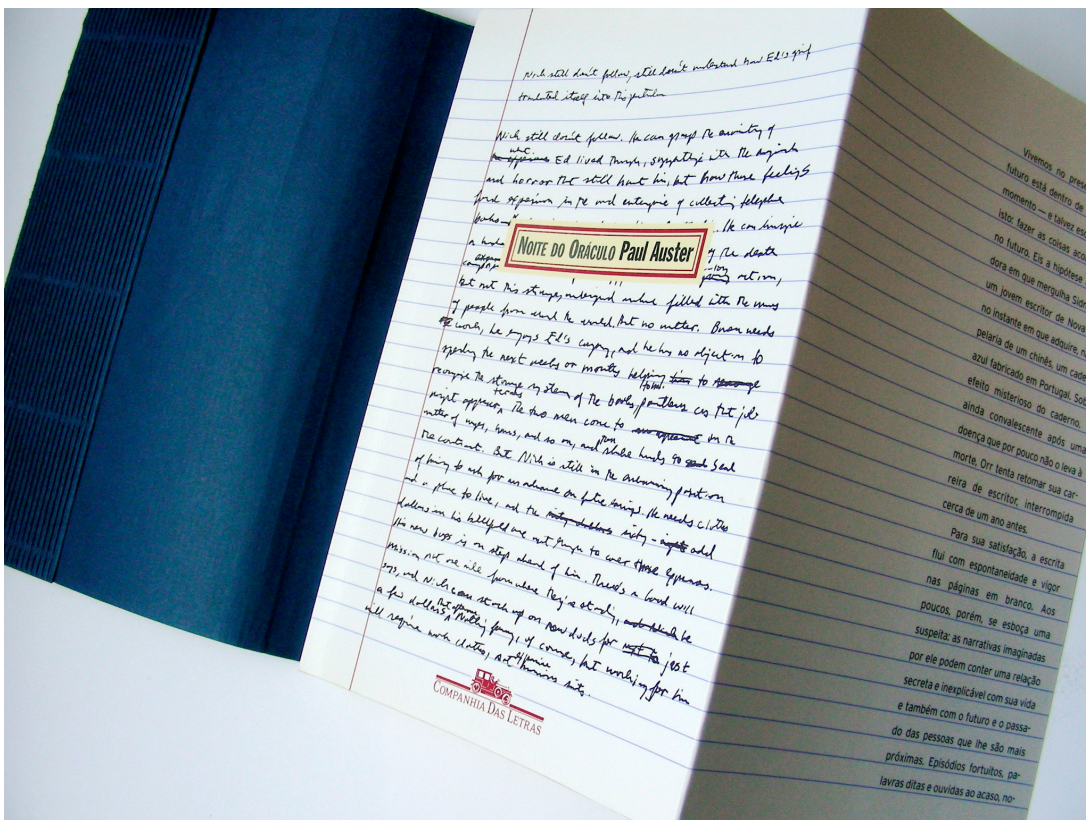 Nick still don't follow, still doesn't understand how Ed's grief
translated itself into this particular
Nick still doesn't follow. He can grasp the enormity of
what Ed lived through, sympathize with the anguish
and horror that still haunt him, but how those feelings
found expression in the mad enterprise of collecting telephone
books. He can imagine
NOITE DO ORÁCULO Paul Auster
of the death
action,
but not this strange, underground archive filled with the names
of people from around the world. But no matter. Bowen needs
work, he enjoys Ed's company, and he has no objection to
spending the next weeks or months helping him to rearrange
reorganize the storage system of the books, pointless as that job
might appear. The two men come to terms on the
matter of wages, hours, and so on, and then shake hands to seal
the contract. But Nick is still in the embarrassing position
of having to ask for an advance on future earnings. He needs clothes
and a place to live, and the sixty-odd
dollars in his billfold are not enough to cover those expenses.
His new boss is one step ahead of him. There's a Goodwill
mission not one mile from where they're standing, he
says, and Nick can stock up on new duds for just
a few dollars that afternoon. Nothing fancy, of course, but working for him
will require work clothes, not expensive business suits.
COMPANHIA DAS LETRAS
Vivemos no pres
futuro está dentro de
momento — e talvez esc
isto: fazer as coisas aco
no futuro. Eis a hipótese
dora em que mergulha Sid
um jovem escritor de Nova
no instante em que adquire, n
pelaria de um chinês, um cade
azul fabricado em Portugal. Sob
efeito misterioso do caderno,
ainda convalescente após uma
doença que por pouco não o leva à
morte, Orr tenta retomar sua car-
reira de escritor, interrompida
cerca de um ano antes.
Para sua satisfação, a escrita
flui com espontaneidade e vigor
nas páginas em branco. Aos
poucos, porém, se esboça uma
suspeita: as narrativas imaginadas
por ele podem conter uma relação
secreta e inexplicável com sua vida
e também com o futuro e o passa-
do das pessoas que lhe são mais
próximas. Episódios fortuitos, pa-
lavras ditas e ouvidas ao acaso, no-